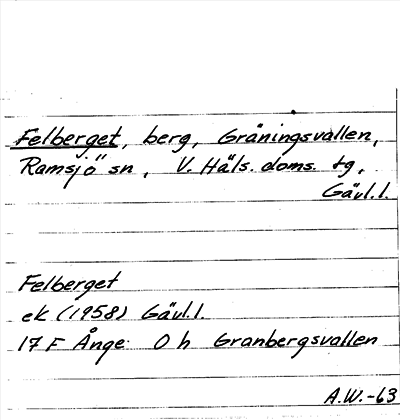 Felberget, berg, Gråningsvallen,
Ramsjö sn, V. Häls. doms. tg,
Gävl.l.
Felberget
ek (1958) Gävl.l.
17 F Ånge O h Granbergsvallen
A.W.-63